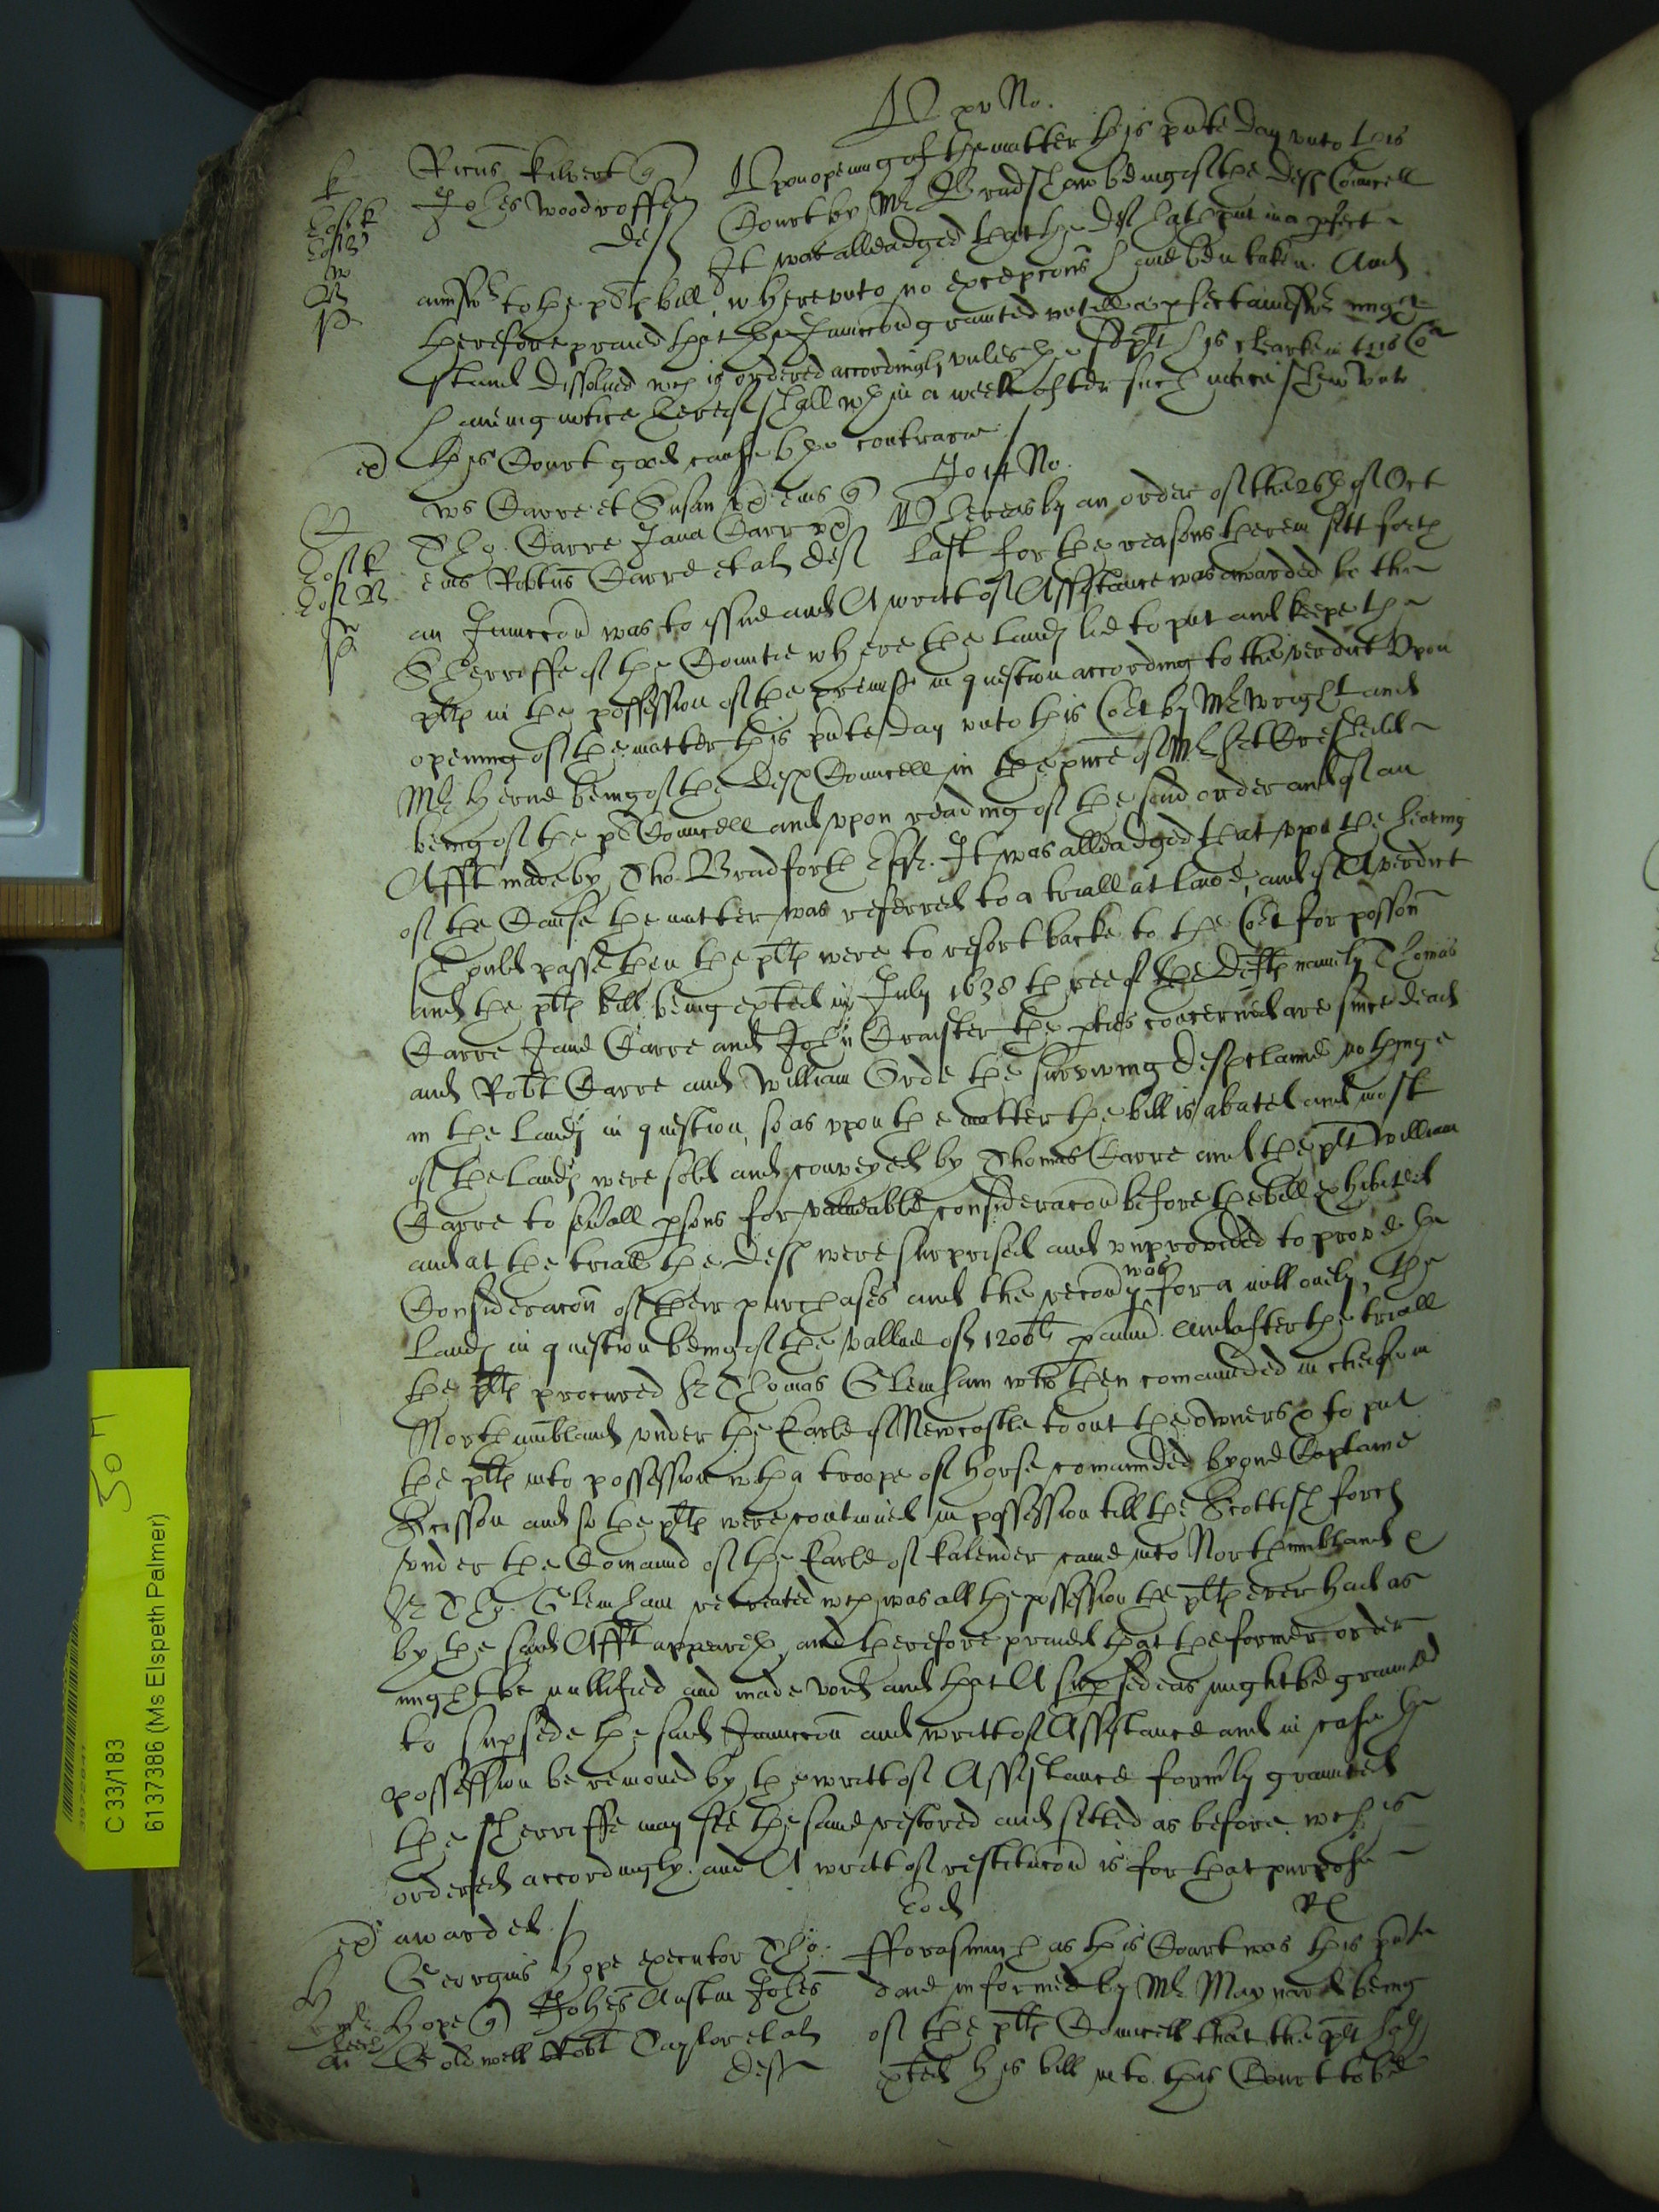 xv No.
Ricus Kilvert q Vpon opening of the matter this pnte day vnto this
Johes Woodroffe Court by Mr Bradshaw being of the defts Councell
def It was alleadged that the def hath put in a pfect
answer to the plts bill wherevnto no excepcons haue bin taken. And
therefore praied that the Iniunccon granted vntill a pfect answer might
stand dissolued wch is ordered accordingly vnles the plt his clarke in this Cot
haueing notice hereof shall wthin a week after such notice shew vnto
this Court good cause to the contrarie
Jo 14 No.
ws Carre et Susan vx eius q Whereas by an order of the 26th of Oct
Tho. Carre Jana Carr vx last for the reasons therein sett forth
eius Robtus Carre et al def
an Iniunccon was to issue and A writt of Assistance was awarded to the
Sherriffe of the Countie where the lands lie to put and keepe the
plts in the possession of the premisses in question according to the verdict Vpon
opening of the matter this pnte day vnto this Cot by Mr Wright and
Mr Herne being of the defs Councell in the pnce of Mr Sert Cresheild
being of the pls Councell and vpon reading of the said order and of an
Afft made by Tho. Bradforth Esqr. It was alleadged that vpon the hearing
of the Cause the matter was referred to a triall at lawe, and if A verdict
should passe then the plts were to resort backe to the Cot for posson
And the plts bill being exhted in July 1638 three of the Defts namely Thomas
Carre Jane Carre and John Craister the pties concerned are since dead
and Robt Carre and William Orde the surviving defs claime nothinge
in the lands in question, so as vpon the matter the bill is abated and most
of the lands were sold and conveyed by Thomas Carre and the plt William
Carre to seuall psons for valuable consideracon before the bill exhibited
and at the triall the defs were surprised and vnprovided to prove the
Consideracon of their purchases and the recouy was for a will onely, The
lands in question being of the vallue of 1200li p ann. And after the triall
the plts procured Sr Thomas Glemham who then comaunded in cheife in
Northumbland vnder the Earle of Newcastle to out the owners & to put
the plts into possession wth a troope of horse comaunded by one Captaine
Scisson and so the plts were continued in possession till the Scottish forces
vnder the Comaund of the Earle of Kalender came into Northumbland &
Sr Tho. Glemham retreated wch was all the possession the plts ever had as
by the said Afft appeareth, and therefore praied that the former order
might be nullified and made void and that A supsedeas might be graunted
to supsede the said Iniunccon and writt of Assistance and in case the
possession be remoued by the writt of Assistance formly graunted
the sherriffe may see the same restored and setled as before, wch is
ordered accordingly. and A writt of restitucon is for that purpose
awarded.
Eod
Georgius Hope executor Tho. fforasmuch as this Court was this pnte
Hope q Johes Austin Johes daie informed by Mr Maynard being
Goldwell Robt Taylor et al of the plts Councell that the plt hath
defs exhted his bill into this Court to be
C 33/183
61 37386 (Ms Elspeth Palmer)